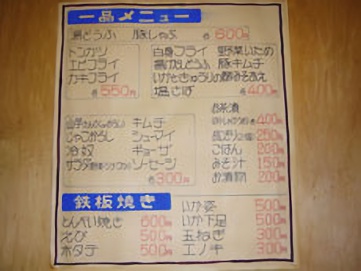 一品メニュー
湯どうふ 豚しゃぶ 各600円
トンカツ 白身フライ 野菜いため
エビフライ 揚げだしどうふ 豚キムチ
カキフライ いかときゅうりの酢みそあえ
各550円 塩さば 各400円
お茶漬
キムチ 各400円
じゃこおろし シューマイ 250円
冷奴 ギョーザ ごはん 200円
サラダ ソーセージ みそ汁 150円
各300円 お漬物 200円
鉄板焼き いか姿 500円
とんぺい焼き 600円 いか下足 500円
えび 500円 玉ねぎ 300円
ホタテ 500円 エノキ 300円